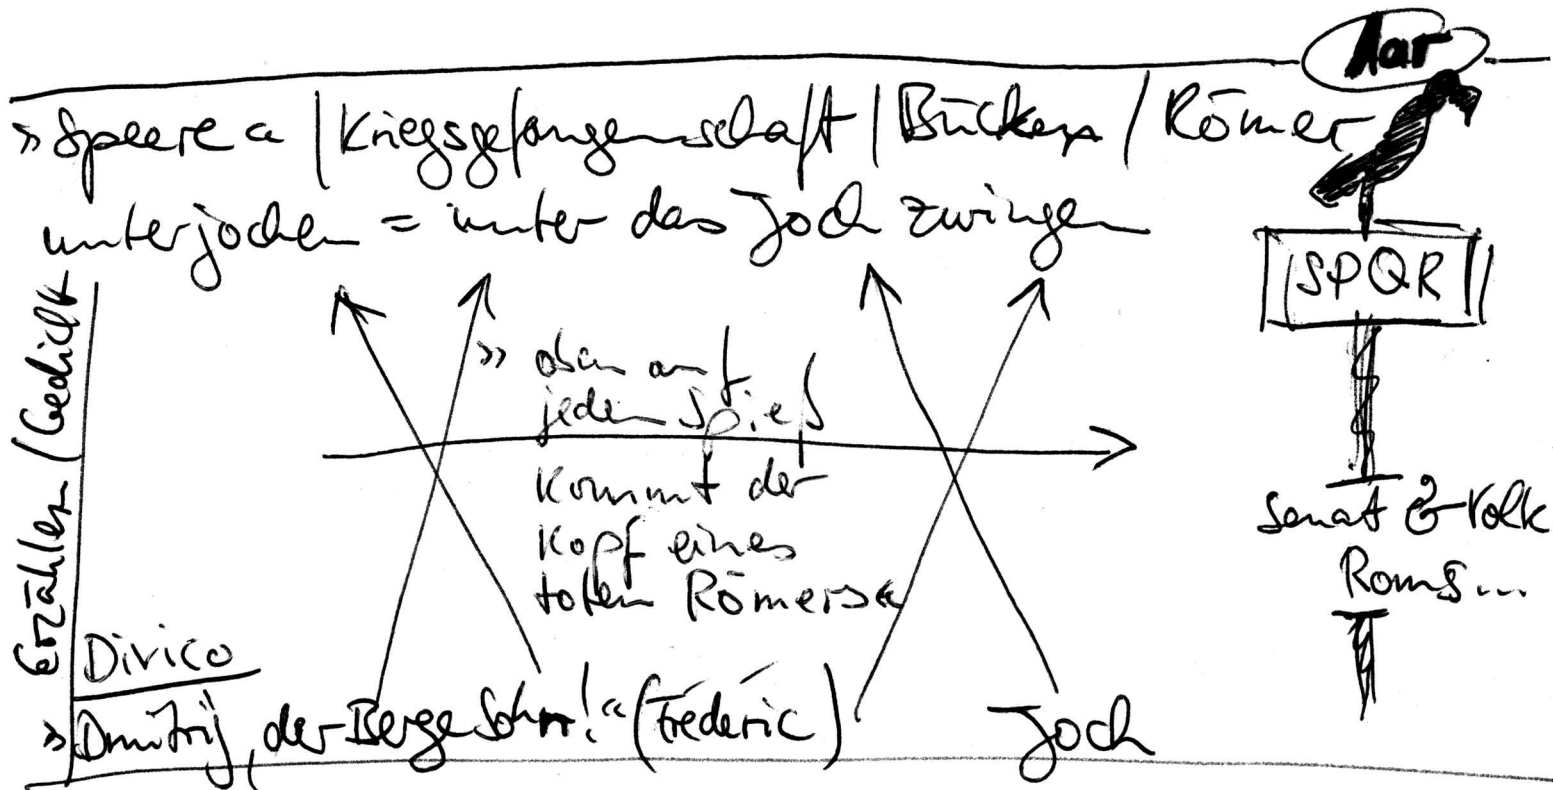 Aar
»Speere« / Kriegsgefangenschaft / Bücken / Römer
unterjochen = unter das Joch zwingen
SPQR
Erzähler / Gedicht
» oben auf
jeden Spieß
kommt der
Kopf eines
toten Römers«
Senat & Volk
Roms...
Divico
»Dmitrij, der Berge Sohn!« (Fréderic)
Joch